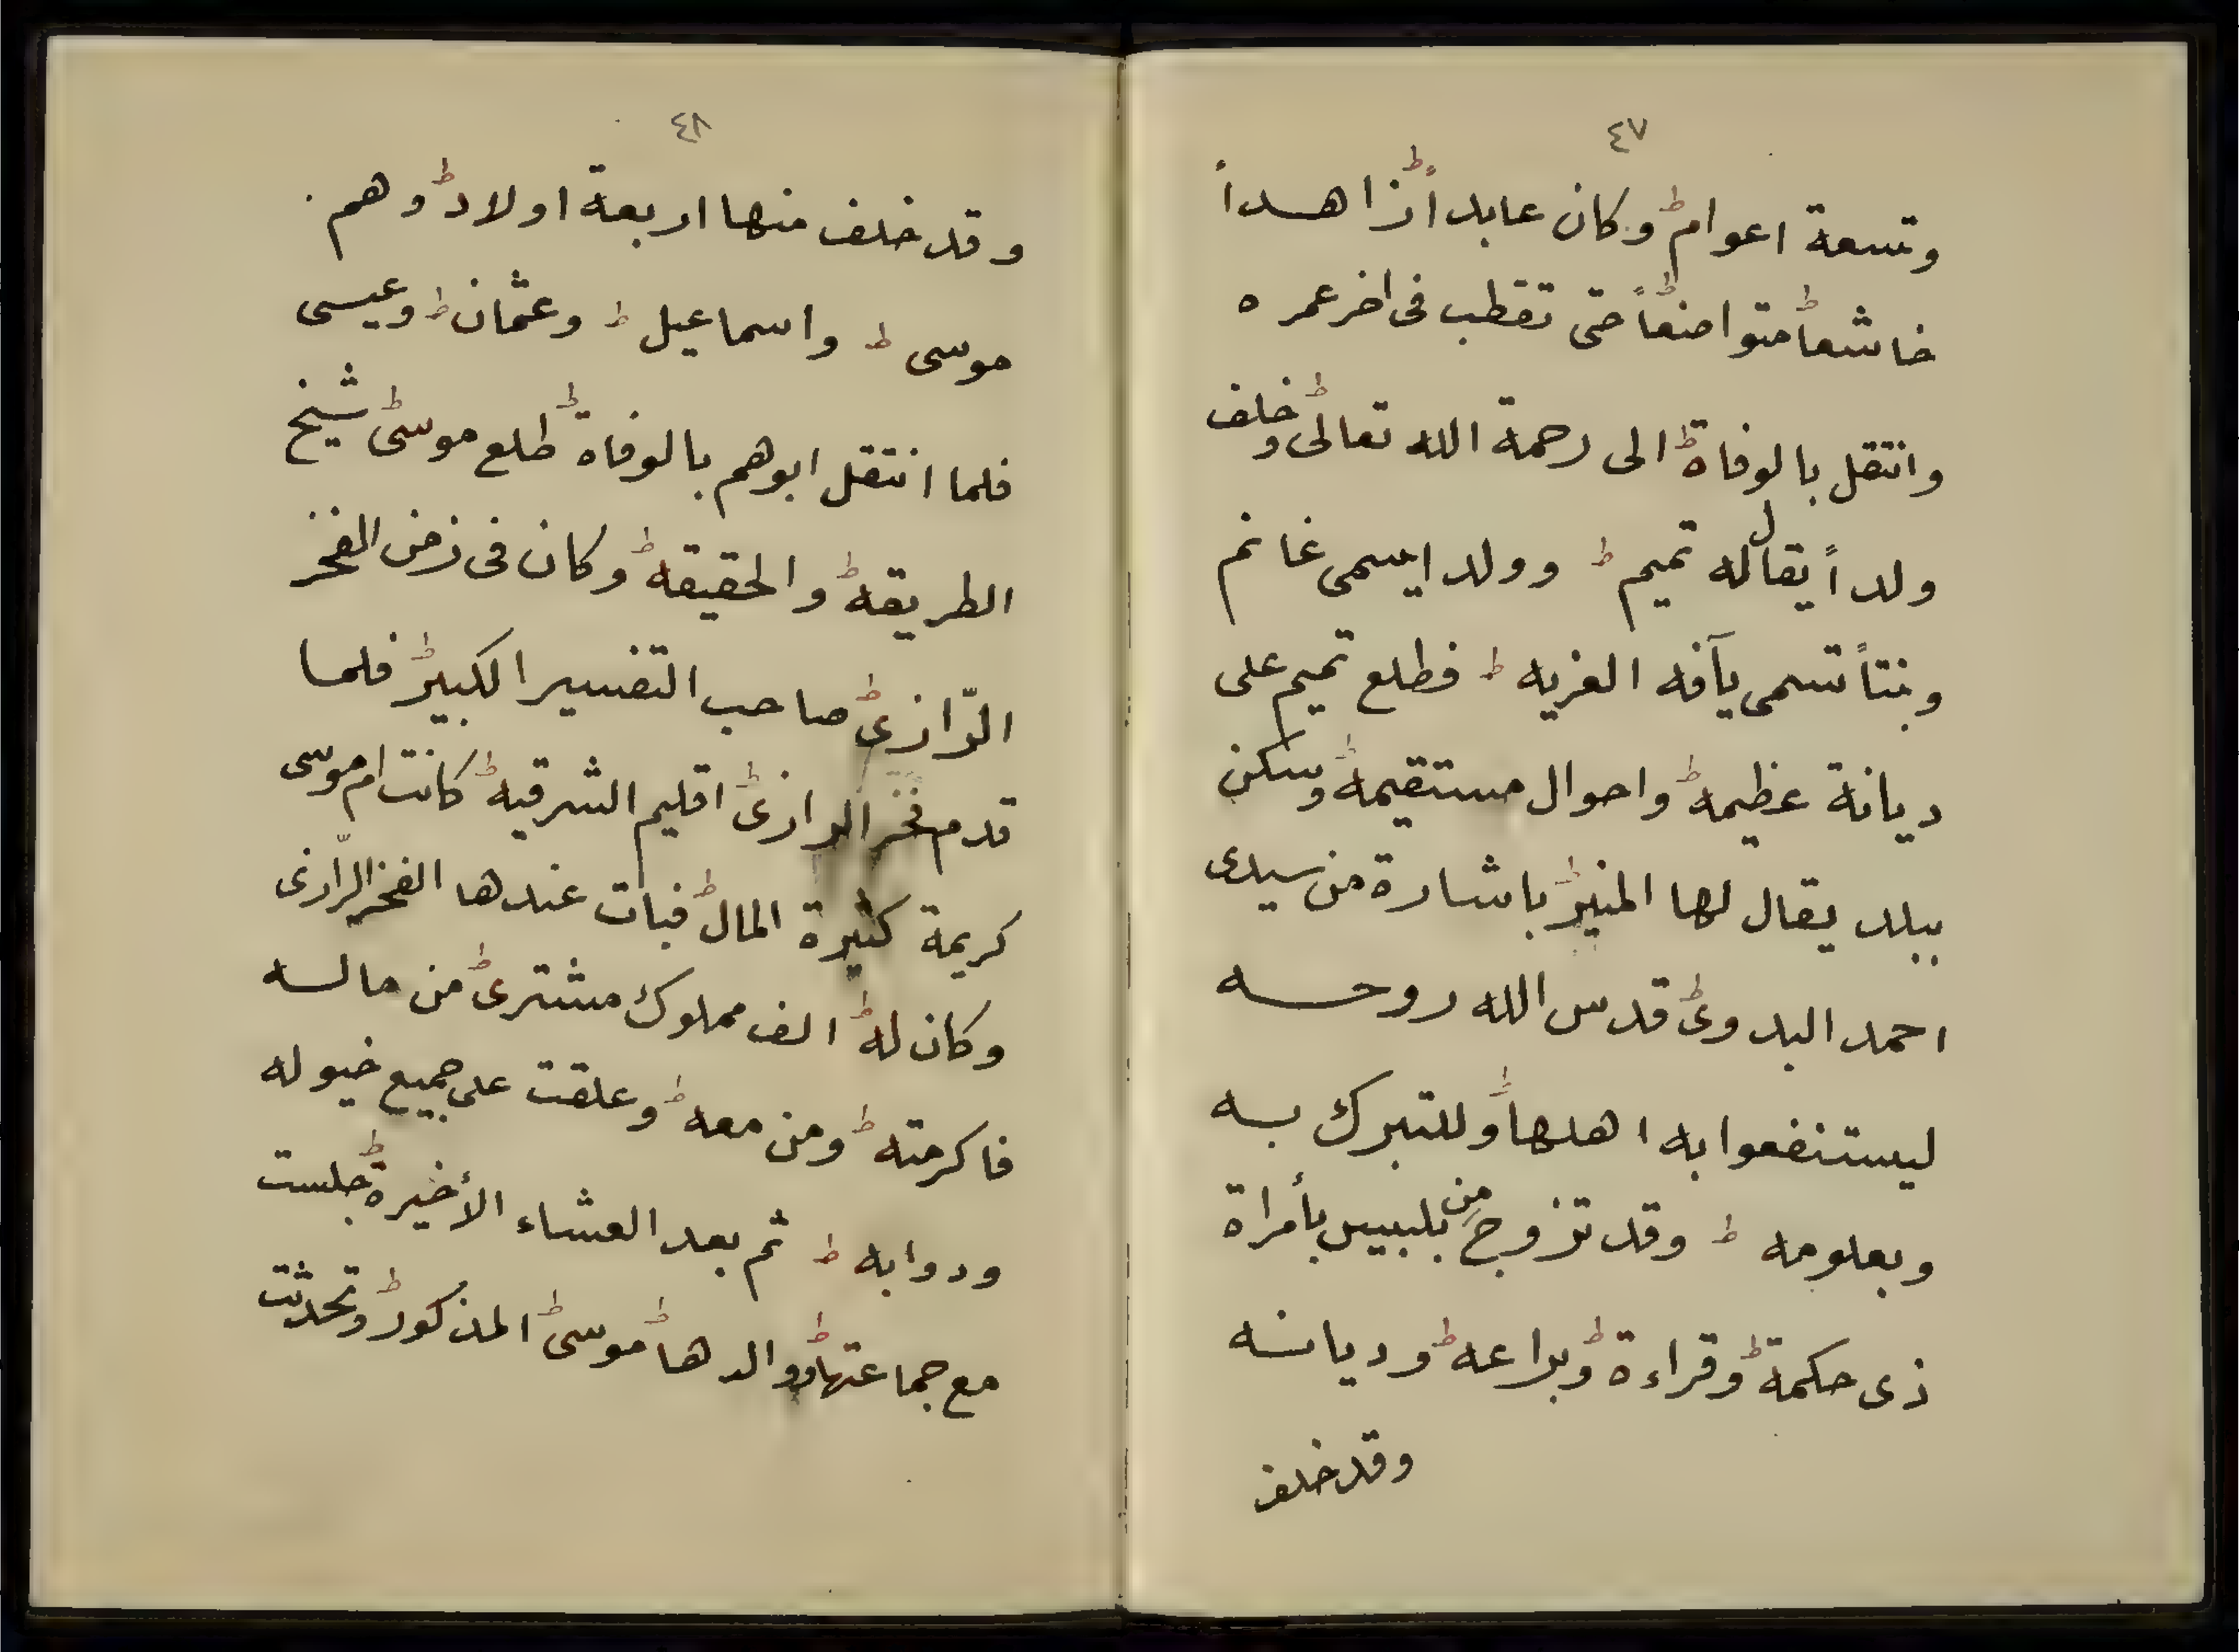 ٤٧
وتسعة اعوام ط وكان عابداً ط زاهداً
خاشعاً ط متواضعاً ط حتى تقطب فى اخر عمره
وانتقل بالوفاة ط الى رحمة الله تعالى ط وخلف
ولداً يقال له تميم ط وولدا يسمى غانم
وبنتاً تسمى يآفه الغريه ط فطلع تميم على
ديانة عظيمه ط واحوال مستقيمه ط وسكن
ببلد يقال لها المنير ط باشارة من سيدى
احمد البدوى ط قدس الله روحه
ليستنفعوا به اهلها ط وللتبرك به
وبعلومه ط وقد تزوج من بلبيس بأمراة
ذى حكمة ط وقراءة ط وبراعه ط وديانه
وقد خلف
٤٨
وقد خلف منها اربعة اولاد ط وهم
موسى ط واسماعيل ط وعثمان ط وعيسى
فلما انتقل ابوهم بالوفاة ط طلع موسى ط شيخ
الطريقه ط والحقيقه ط وكان فى زمن الفخر
الرّازى ط صاحب التفسير الكبير ط فلما
قدم فخر الرازى ط اقليم الشرقيه ط كانت ام موسى
كريمة كثيرة المال ط فبات عندها الفخر الرّازى
وكان له ط الف مملوك مشترى ط من ماله
فاكرمته ط ومن معه ط وعلقت على جميع خيوله
ودوابه ط ثم بعد العشاء الأخيرة ط جلست
مع جماعتها ط ووالدها ط موسى ط المذكور ط وتحدثت